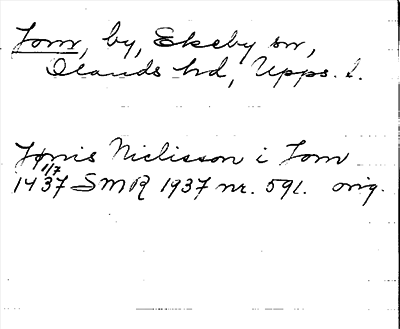 Tomr, by, Ekeby sn,
Olands hd, Upps. l.
Jönis Niclisson i Tom
1437 1/7 SMR 1937 nr. 591. orig.